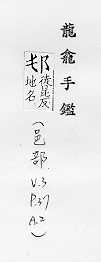 龍龕手鑑
𨙻徒昆反
地名
(邑部
V.3
P.37
A.2)